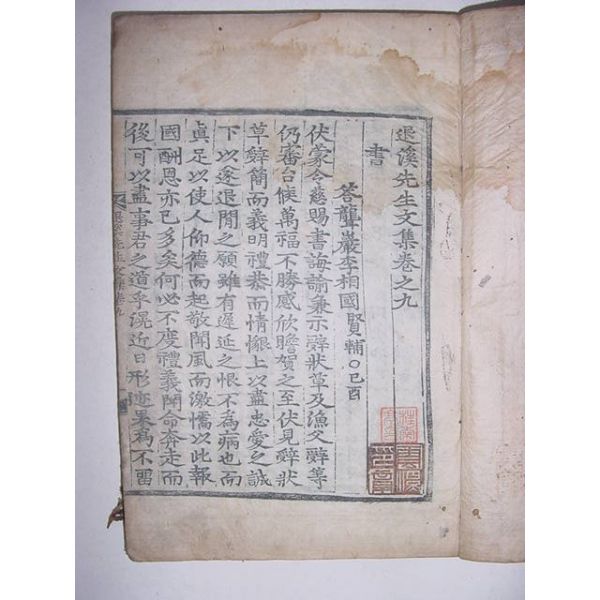 退溪先生文集卷之九
書
答聾巖李相國賢輔○己酉
伏蒙令慈賜書誨諭兼示辭狀草及漁父辭等
仍審台候萬福不勝感欣瞻賀之至伏見辭狀
草辭簡而義明禮恭而情懇上以盡忠愛之誠
下以遂退閒之願雖有遲延之恨不爲病也而
眞足以使人仰德而起敬聞風而激懦以此報
國酬恩亦已多矣何必不度禮義聞命奔走而
後可以盡事君之道乎滉近日形迹果爲不習